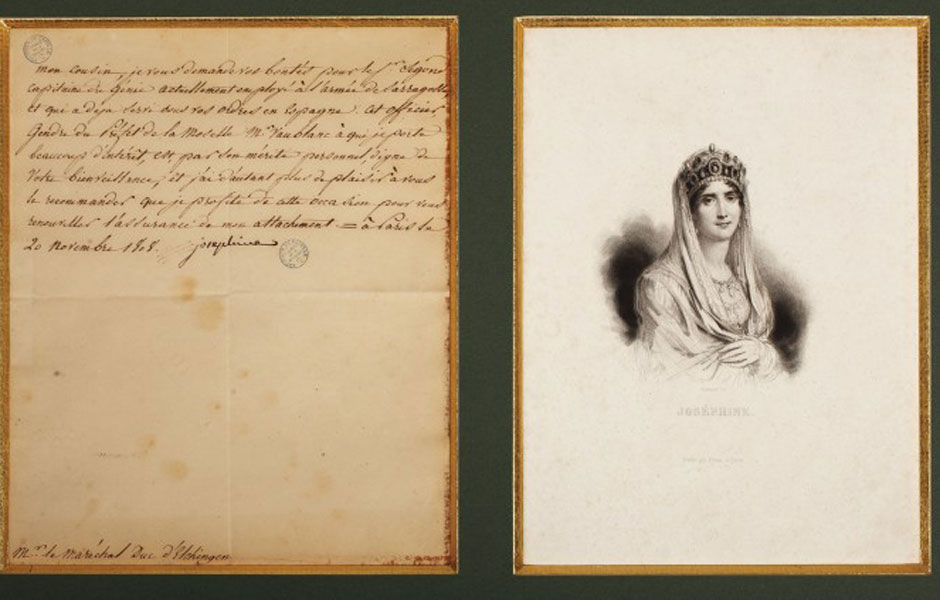 mon cousin, je vous demande vos bontés pour le Sr. Segond
capitaine du Génie actuellement employé à l'armée de Sarragosse
et qui a deja servi sous vos ordres en Espagne. Cet officier,
Gendre du Préfet de la Moselle Mr. Vaublanc à qui je porte
beaucoup d'intérêt, est, par son mérite personnel, digne de
Votre bienveillance, et j'ai d'autant plus de plaisir à vous
le recommander que je profite de cette occasion pour vous
renouveller l'assurance de mon attachement = à Paris le
20 Novembre 1808. joséphine
Mr. le maréchal Duc d'Elchingen
JOSÉPHINE.